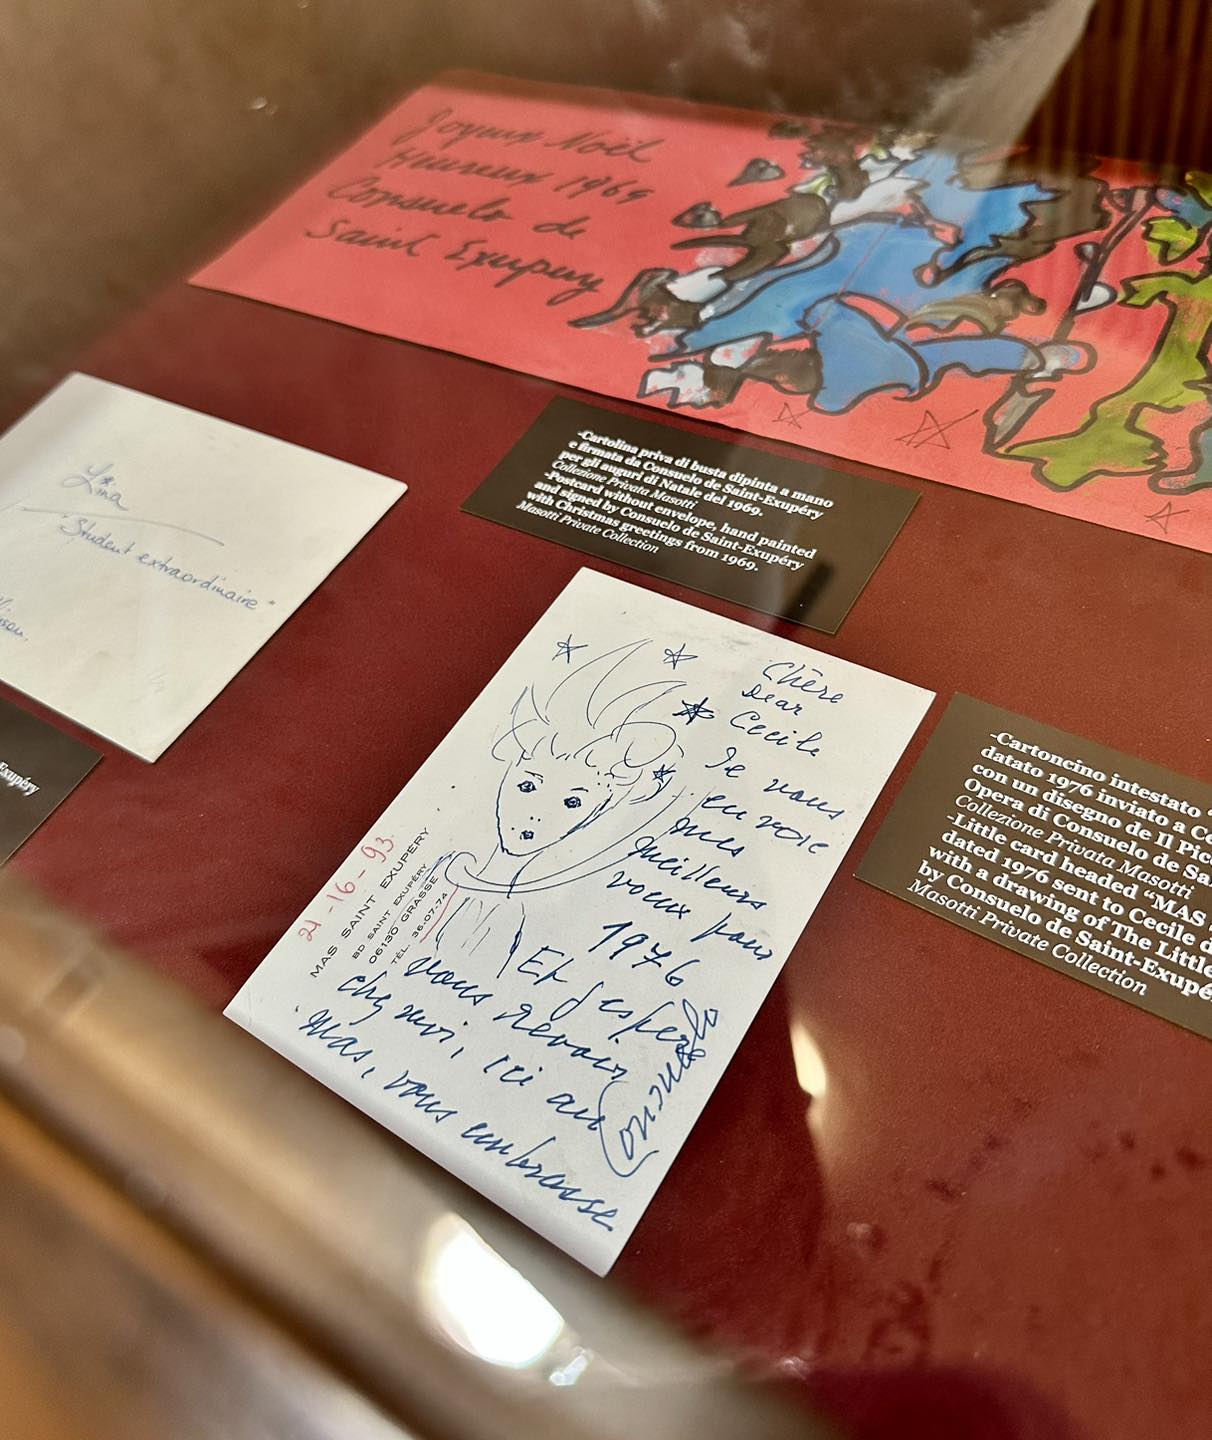 Joyeux Noël
Heureux 1969
Consuelo de
Saint Exupery
-Cartolina priva di busta dipinta a mano
e firmata da Consuelo de Saint-Exupéry
per gli auguri di Natale del 1969.
Collezione Privata Masotti
-Postcard without envelope, hand painted
and signed by Consuelo de Saint-Exupéry
with Christmas greetings from 1969.
Masotti Private Collection
Lina
"Student extraordinaire"
Exupéry
Chère
Dear
Cecile
Je vous
envoie
mes
meilleurs
voeux pour
1976
Et j'espere
vous revoir
chez moi, ici au
Mas, vous embrasse
Consuelo
21-16-93
MAS SAINT EXUPÉRY
BD SAINT EXUPÉRY
06130 GRASSE
TÉL. 36-07-74
-Cartoncino intestato
datato 1976 inviato a Ce
con un disegno de Il Picc
Opera di Consuelo de Sai
Collezione Privata Masotti
-Little card headed "MAS
dated 1976 sent to Cecile d
with a drawing of The Little
by Consuelo de Saint-Exupé
Masotti Private Collection